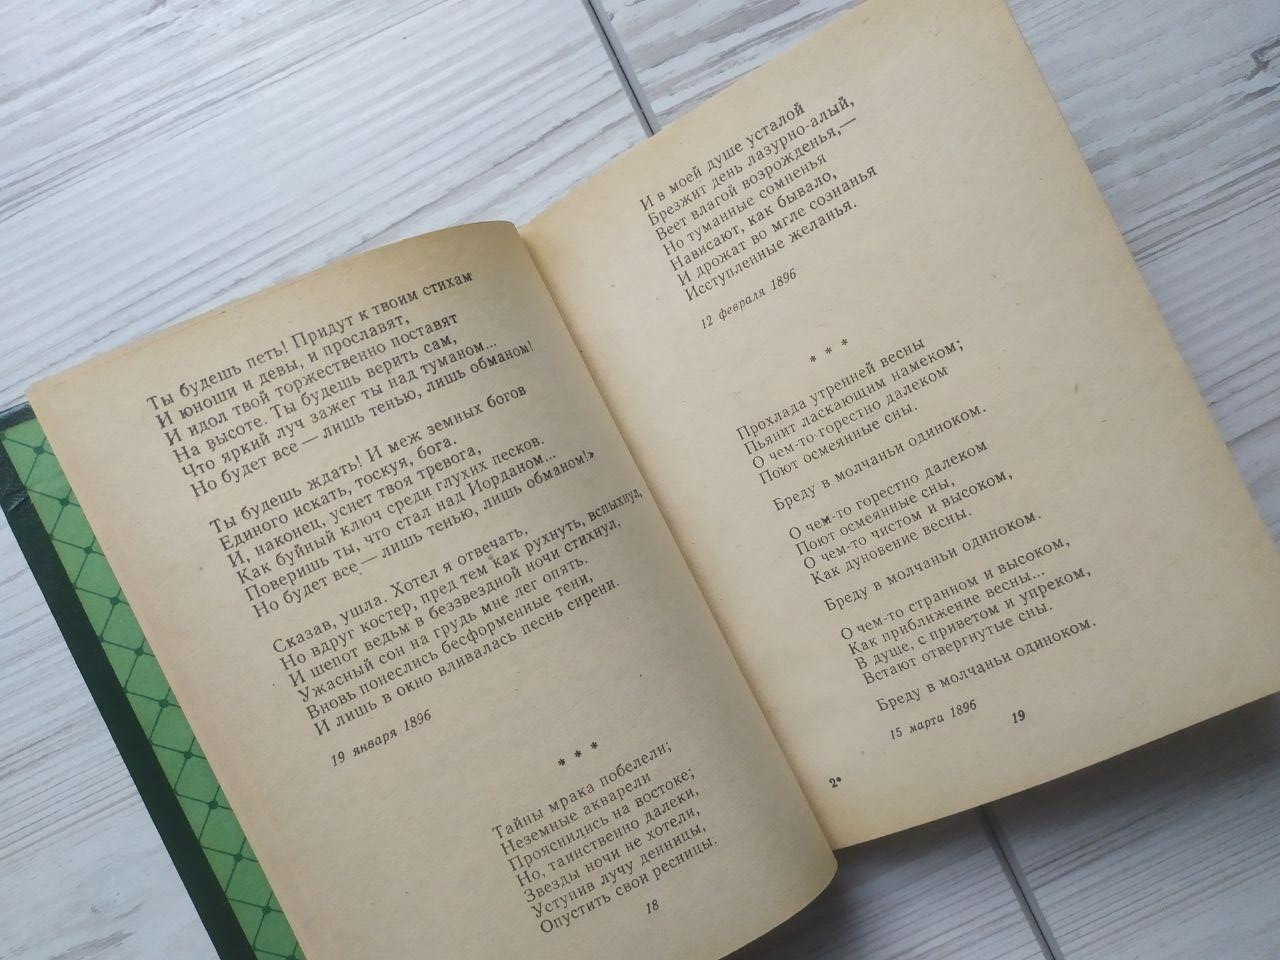 Ты будешь петь! Придут к твоим стихам
И юноши и девы, и прославят,
И идол твой торжественно поставят
На высоте. Ты будешь верить сам,
Что яркий луч зажег ты над туманом...
Но будет все — лишь тенью, лишь обманом!
Ты будешь ждать! И меж земных богов
Единого искать, тоскуя, бога.
И, наконец, уснет твоя тревога,
Как буйный ключ среди глухих песков.
Поверишь ты, что стал над Иорданом...
Но будет все — лишь тенью, лишь обманом!»
Сказав, ушла. Хотел я отвечать,
Но вдруг костер, пред тем как рухнуть, вспыхнул,
И шепот ведьм в беззвездной ночи стихнул,
Ужасный сон на грудь мне лег опять.
Вновь понеслись бесформенные тени,
И лишь в окно вливалась песнь сирени.
19 января 1896
* * *
Тайны мрака побелели;
Неземные акварели
Прояснились на востоке;
Но, таинственно далеки,
Звезды ночи не хотели,
Уступив лучу денницы,
Опустить свои ресницы.
18
И в моей душе усталой
Брезжит день лазурно-алый,
Веет влагой возрожденья,—
Но туманные сомненья
Нависают, как бывало,
И дрожат во мгле сознанья
Исступленные желанья.
12 февраля 1896
* * *
Прохлада утренней весны
Пьянит ласкающим намеком;
О чем-то горестно далеком
Поют осмеянные сны.
Бреду в молчаньи одиноком.
О чем-то горестно далеком
Поют осмеянные сны,
О чем-то чистом и высоком,
Как дуновение весны.
Бреду в молчаньи одиноком.
О чем-то странном и высоком,
Как приближение весны...
В душе, с приветом и упреком,
Встают отвергнутые сны.
Бреду в молчаньи одиноком.
15 марта 1896
19
2*